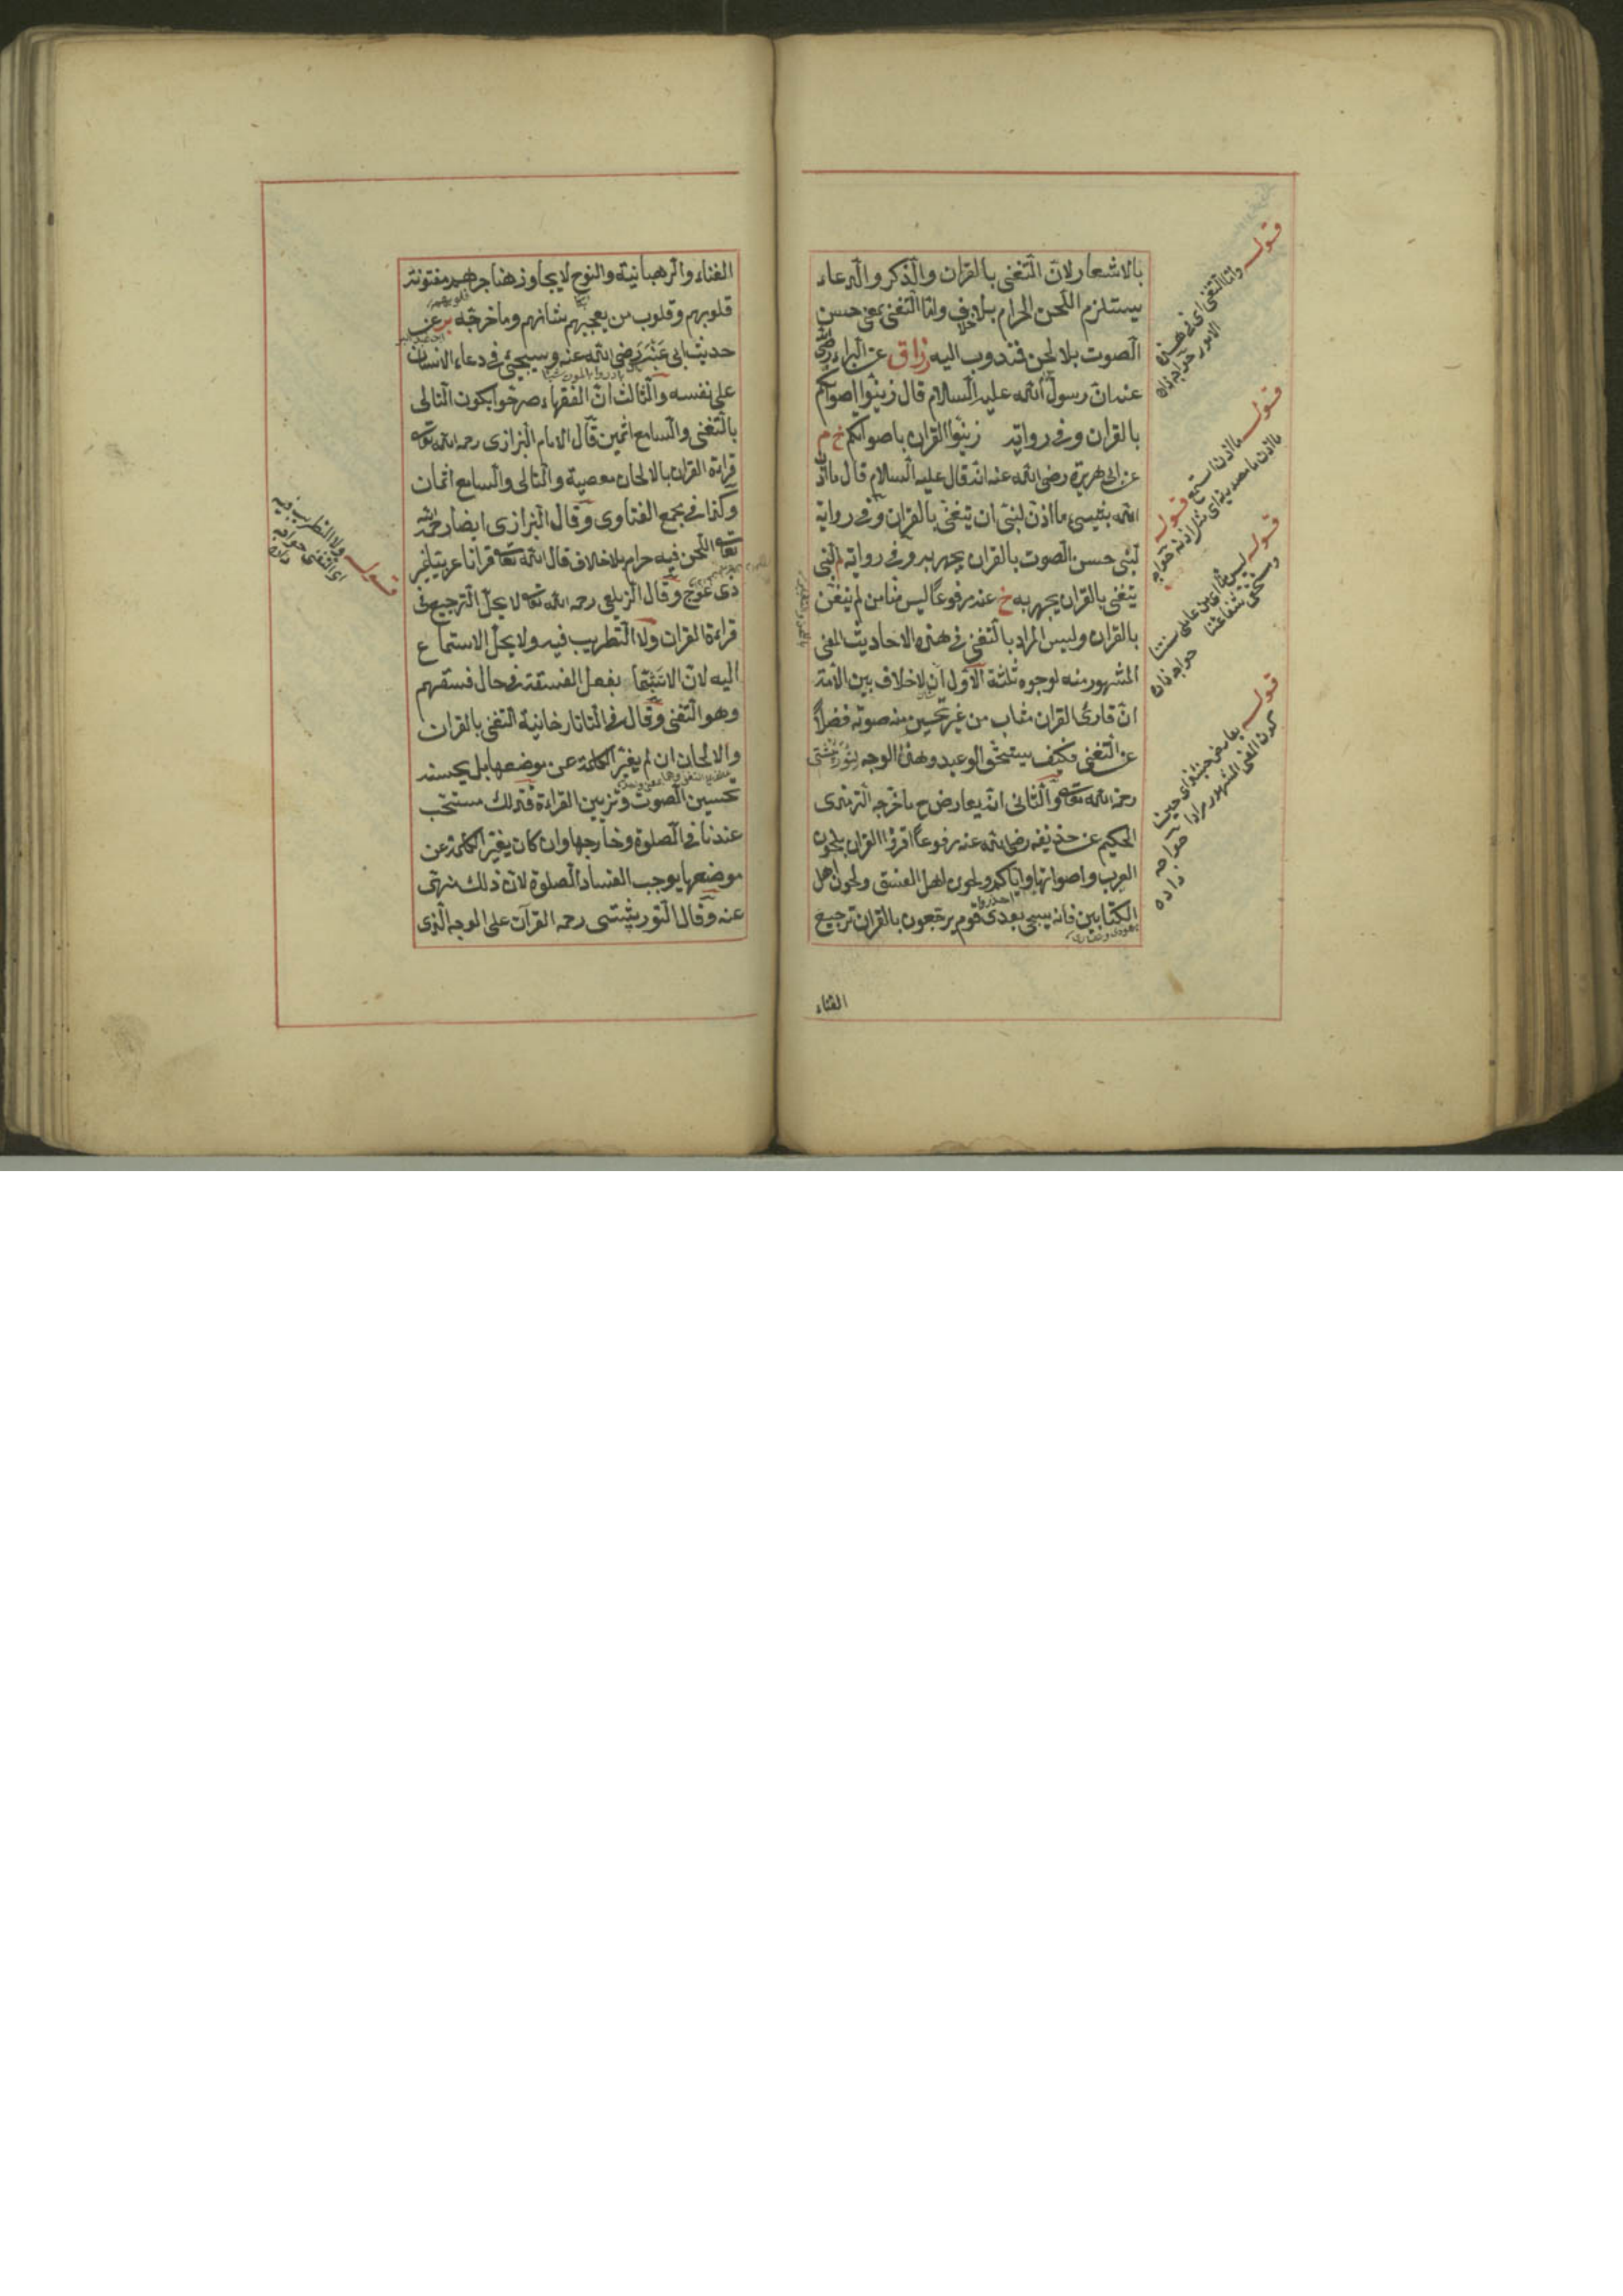 بالاشعار لان التغنى بالقران والذكر والدعاء
يستلزم اللحن الحرام بلا خلاف واما التغنى بمعنى حسن
الصوت بلا لحن فمندوب اليه زاق عن البراء رضى الله
عنه ان رسول الله عليه السلام قال زينوا اصواتكم
بالقران وفى رواية زينوا القران باصواتكم خ م
عن ابى هريرة رضى الله عنه انه قال عليه السلام قال ما اذن
الله بشىء ما اذن لنبى ان يتغنى بالقران وفى رواية
لنبى حسن الصوت بالقران يجهر به وفى رواية لنبى
يتغنى بالقران يجهر به خ عنه مرفوعا ليس منا من لم يتغن
بالقران وليس المراد بالتغنى فى هذه الاحاديث المعنى
المشهور منه لوجوه ثلثة الاول ان لا خلاف بين الائمة
ان قارئ القران مثاب من غير تحسين منه صوته فضلا
عن التغنى فكيف يستحق الوعيد وهذا الوجه لتوربشتى
رحمه الله تعالى والثانى انه يعارض ح ما خرجه الترمذى
الحكيم عن حذيفة رضى الله عنه مرفوعا اقرؤا القران بلحون
العرب واصواتها واياكم ولحون اهل العشق ولحون اهل
الكتابين فانه سيجئ بعدى قوم يرجعون بالقران ترجيع
احذروا
يهودى ونصارى
الغناء
قوله واما التغنى اى فى هذه
الامور خواجه زاده
قوله ما اذن استمع قوله
ما اذن ما مصدرية اى مثل اذنه خواجه
قوله ليس منا اى من عاملى سنتنا
ومستحق شفاعتنا
خواجه زاده
قوله يعارض حينئذ اى حين
كون المعنى المشهور مرادا
خواجه
زاده
الغناء والرهبانية والنوح لا يجاوز حناجرهم مفتونة
قلوبهم وقلوب من يعجبهم شانهم وما خرجه بر عن
حديث ابى عنبر رضى الله عنه وسيجئ فى دعاء الانسان
على نفسه والثالث ان الفقهاء صرحوا بكون التالى
بالتغنى والسامع اثمين قال الامام البزازى رحمه الله تعالى
قراءة القران بالالحان معصية والتالى والسامع اثمان
وكذا فى مجمع الفتاوى وقال البزازى ايضا رحمه الله
تعالى اللحن فيه حرام بلا خلاف قال الله تعالى قرانا عربيا غير
ذى عوج وقال الزيلعى رحمه الله تعالى لا يحل الترجيع فى
قراءة القران ولا التطريب فيه ولا يحل الاستماع
اليه لان الا تشبها بفعل الفسقة فى حال فسقهم
وهو التغنى وقال فى التاتارخانية التغنى بالقران
والالحان ان لم يغير الكلمة عن موضعها بل يحسنه
تحسين الصوت وتزيين القراءة فذلك مستحب
عندنا فى الصلوة وخارجها وان كان يغير الكلمة عن
موضعها يوجب الفساد الصلوة لان ذلك منهى
عنه وقال التوربشتى رحمه القرآن على الوجه الذى
قوله ولا التطريب فيه
اى التغنى خواجه
زاده